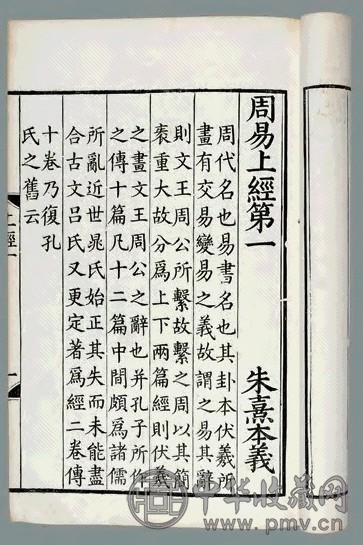 周易上經第一 朱熹本義
周代名也易書名也其卦本伏羲所
畫有交易變易之義故謂之易其辭
則文王周公所繫故繫之周以其簡
袠重大故分為上下兩篇經則伏羲
之畫文王周公之辭也并孔子所作
之傳十篇凡十二篇中間頗為諸儒
所亂近世晁氏始正其失而未能盡
合古文呂氏又更定著為經二卷傳
十卷乃復孔
氏之舊云
上經
一
中华收藏网
www.pmv.cn